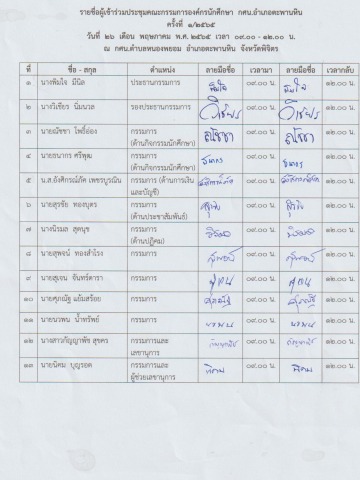 รายชื่อผู้เข้าร่วมประชุมคณะกรรมการองค์กรนักศึกษา กศน.อำเภอตะพานหิน
ครั้งที่ ๑/๒๕๖๕
วันที่ ๒๖ เดือน พฤษภาคม พ.ศ. ๒๕๖๕ เวลา ๐๙.๐๐ - ๑๒.๐๐ น.
ณ กศน.ตำบลหนองพยอม อำเภอตะพานหิน จังหวัดพิจิตร
ที่ ชื่อ - สกุล ตำแหน่ง ลายมือชื่อ เวลามา ลายมือชื่อ เวลากลับ
๑ นางพิมใจ มีนิล ประธานกรรมการ พิมใจ ๐๙.๐๐ น. พิมใจ ๑๒.๐๐ น.
๒ นายวิเชียร นิ่มนวล รองประธานกรรมการ วิเชียร ๐๙.๐๐ น. วิเชียร ๑๒.๐๐ น.
๓ นายณัชชา โพธิ์อ่อง กรรมการ ณัชชา ๐๙.๐๐ น. ณัชชา ๑๒.๐๐ น.
(ด้านกิจกรรมนักศึกษา)
๔ นายธนากร ศรีพุฒ กรรมการ ธนากร ๐๙.๐๐ น. ธนากร ๑๒.๐๐ น.
(ด้านกิจกรรมนักศึกษา)
๕ น.ส.อังศิกรณ์ภัค เพชรบูรณิน กรรมการ (ด้านการเงิน ๐๙.๐๐ น. ๑๒.๐๐ น.
และบัญชี)
๖ นายสุรชัย ทองบุตร กรรมการ ๐๙.๐๐ น. ๑๒.๐๐ น.
(ด้านประชาสัมพันธ์)
๗ นางนิรมล สุดนุช กรรมการ ๐๙.๐๐ น. ๑๒.๐๐ น.
(ด้านปฏิคม)
๘ นายสุพจน์ ทองสำโรง กรรมการ ๐๙.๐๐ น. ๑๒.๐๐ น.
๙ นายสุเจน จันทร์ดารา กรรมการ ๐๙.๐๐ น. ๑๒.๐๐ น.
๑๐ นายศุภณัฐ แย้มสร้อย กรรมการ ศุภณัฐ ๐๙.๐๐ น. ศุภณัฐ ๑๒.๐๐ น.
๑๑ นายนวพน น้ำทรัพย์ กรรมการ นวพน ๐๙.๐๐ น. นวพน ๑๒.๐๐ น.
๑๒ นางสาวกัญญาพัช สุขคร กรรมการและ ๐๙.๐๐ น. ๑๒.๐๐ น.
เลขานุการ
๑๓ นายนิคม บุญรอด กรรมการและ นิคม ๐๙.๐๐ น. นิคม ๑๒.๐๐ น.
ผู้ช่วยเลขานุการ